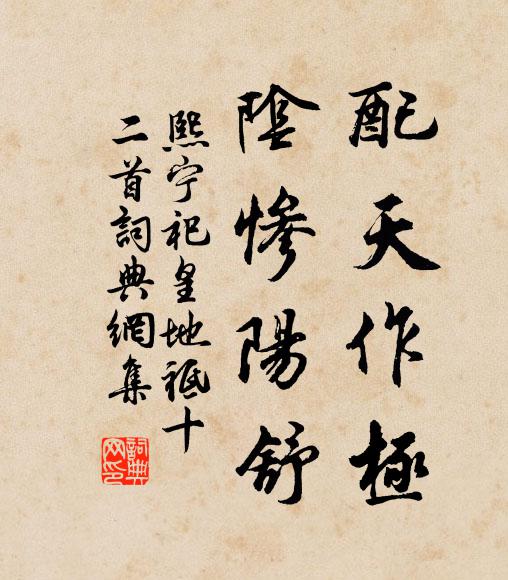 配天作極
陰慘陽舒
熙宁祀皇地祗十
二首詞典網集
詞典
网印